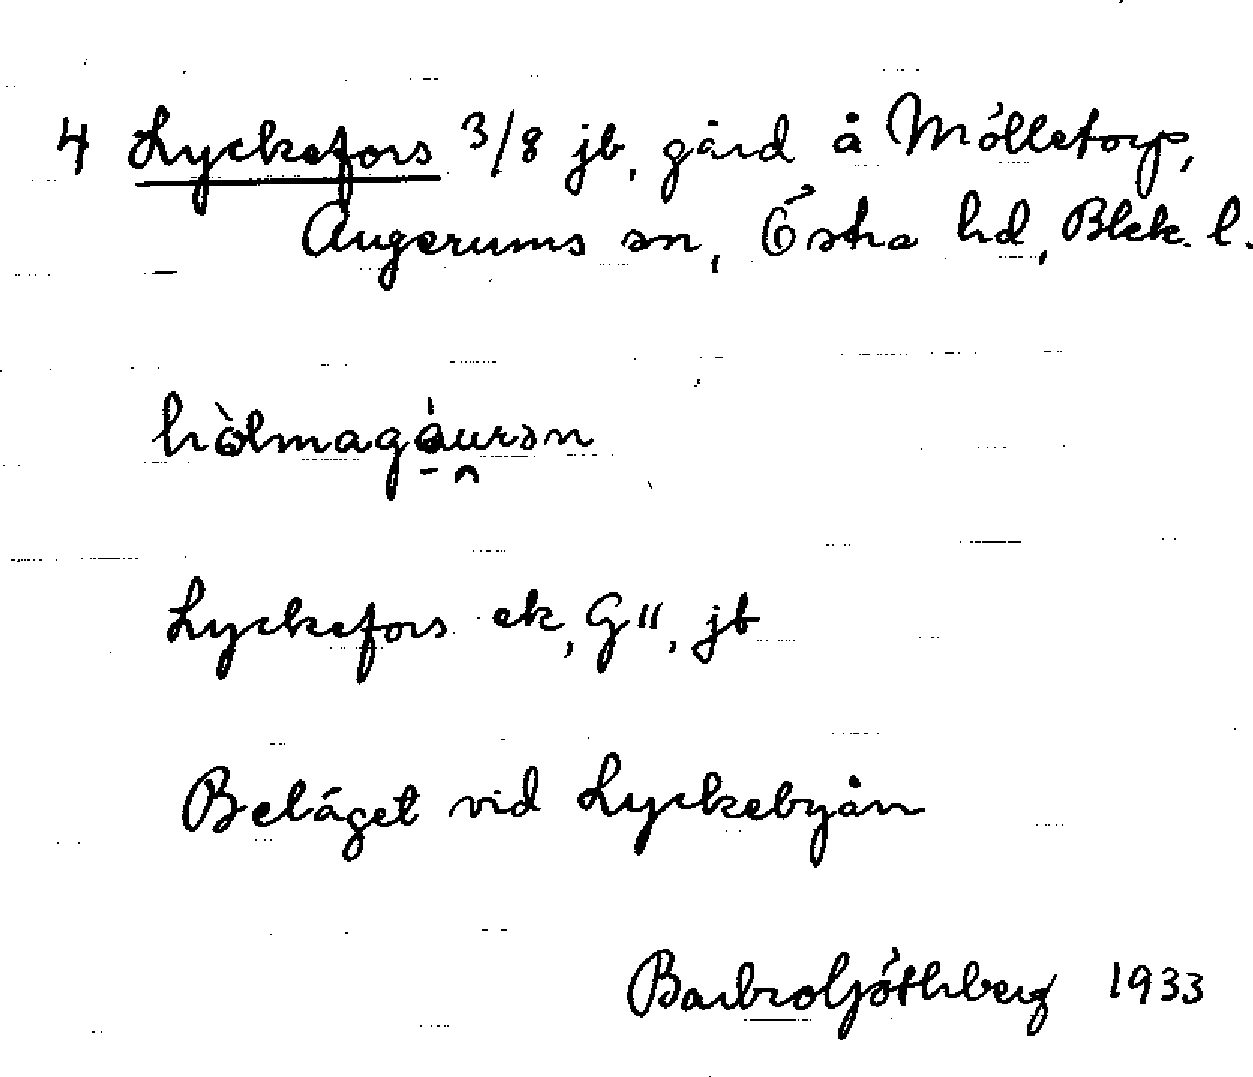 4 Lyckefors 3/8 jb, gård å Mölletorp,
Augerums sn, Östra hd, Blek. l.
hòlmagá̱u̯rən
Lyckefors ek, G11, jb
Beläget vid Lyckebyån
Barbro Göthberg 1933